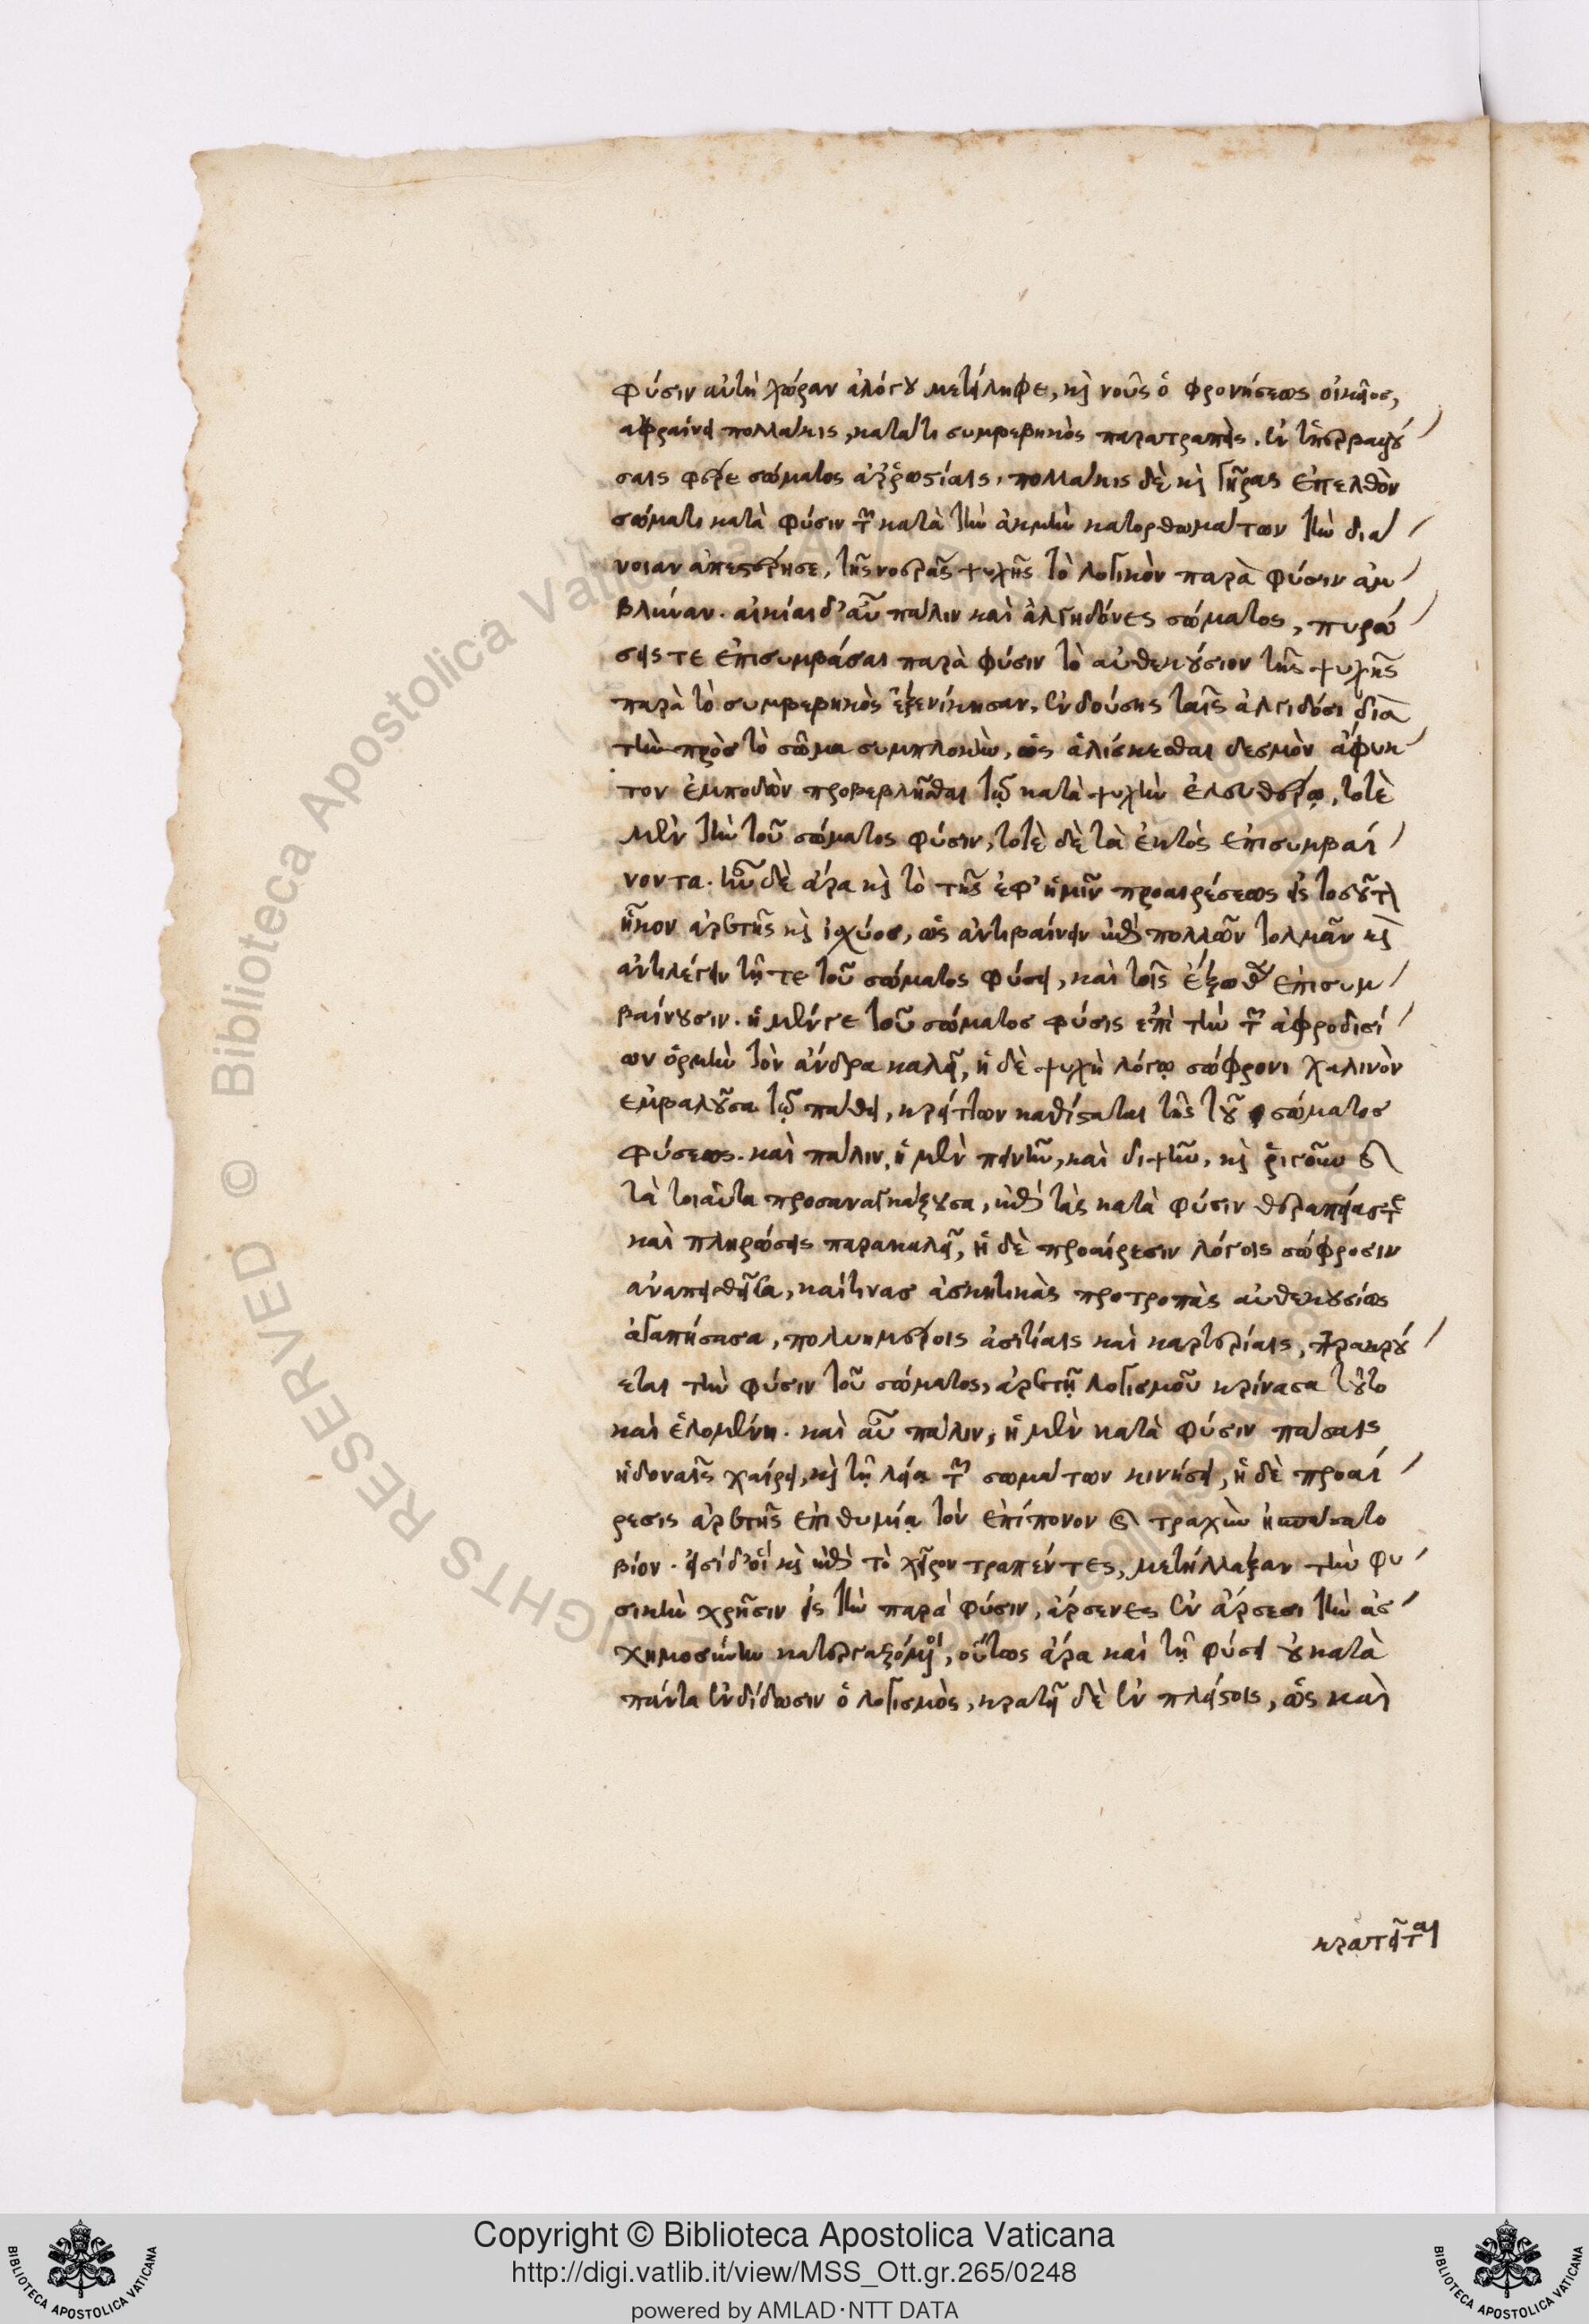 φύσιν αὐτὴ χώραν ἀλόγου μετείληφε, καὶ νοῦς ὁ φρονήσεως οἰκεῖος,
ἀφραίνει πολλάκις, κατά τι συμβεβηκὸς παρατραπείς. ἐν
σαις φέρε σώματος ἀῤῥωστίαις, πολλάκις δὲ καὶ γῆρας ἐπελθὸν
σώματι κατὰ φύσιν τῶν κατὰ τὴν ἀκμὴν κατορθωμάτων τὴν διά
νοιαν ἀπεστέρησε, τῆς νοερᾶς ψυχῆς τὸ λογικὸν παρὰ φύσιν ἀμ
βλύναν. αἰκίαι δ' αὖ πάλιν καὶ ἀλγηδόνες σώματος, πυρώ
σεις τε ἐπισυμβᾶσαι παρὰ φύσιν τὸ αὐθεκούσιον τῆς ψυχῆς
παρὰ τὸ συμβεβηκὸς ἐξενίκησαν, ἐνδούσης ταῖς ἀλγιδόσι διὰ
τὴν πρὸς τὸ σῶμα συμπλοκὴν, ὡς ἁλίσκεσθαι δεσμὸν ἄφυκ
τον ἐμποδὼν προβεβλῆσθαι τῷ κατὰ ψυχὴν ἐλευθέρῳ, τοτὲ
μὲν τὴν τοῦ σώματος φύσιν, τοτὲ δὲ τὰ ἐκτὸς ἐπισυμβαί
νοντα. ἦν δὲ ἄρα καὶ τὸ τῆς ἐφ' ἡμῖν προαιρέσεως εἰς τοσοῦτον
ἧκον ἀρετῆς καὶ ἰσχύος, ὡς ἀντιβαίνειν ἐπὶ πολλῶν τολμᾶν καὶ
ἀντιλέγειν τῇ τε τοῦ σώματος φύσει, καὶ τοῖς ἔξωθεν ἐπισυμ
βαίνουσιν. ἡ μέν γε τοῦ σώματος φύσις ἐπὶ τὴν τῶν ἀφροδισί
ων ὁρμὴν τὸν ἄνδρα καλεῖ, ἡ δὲ ψυχὴ λόγῳ σώφρονι χαλινὸν
ἐμβαλοῦσα τῷ πάθει, κρείττων καθίσταται τῆς τοῦ σώματος
φύσεως. καὶ πάλιν, ἡ μὲν πεινῆν, καὶ διψῆν, καὶ ῥιγοῦν καὶ
τὰ τοιαῦτα προσαναγκάζουσα, ἐπὶ τὰς κατὰ φύσιν θεραπείας τε
καὶ πληρώσεις παρακαλεῖ, ἡ δὲ προαίρεσιν λόγοις σώφροσιν
ἀναπεισθεῖσα, καί τινας ἀσκητικὰς προτροπὰς αὐθεκουσίως
ἀγαπήσασα, πολυημέροις ἀσιτίαις καὶ καρτερίαις, παρακρού
εται τὴν φύσιν τοῦ σώματος, ἀρετῇ λογισμοῦ κρίνασα τοῦτο
καὶ ἑλομένη. καὶ αὖ πάλιν, ἡ μὲν κατὰ φύσιν πάσαις
ἡδοναῖς χαίρει, καὶ τῇ λείᾳ τῶν σωμάτων κινήσει, ἡ δὲ προαί
ρεσις ἀρετῆς ἐπιθυμίᾳ τὸν ἐπίπονον καὶ τραχὺν ἠσπάσατο
βίον. εἰσὶ δ' οἳ καὶ ἐπὶ τὸ χεῖρον τραπέντες, μετήλλαξαν τὴν φυ
σικὴν χρῆσιν εἰς τὴν παρὰ φύσιν, ἄρσενες ἐν ἄρσεσι τὴν ἀσ
χημοσύνην κατεργαζόμενοι, οὕτως ἄρα καὶ τῇ φύσει οὐ κατὰ
πάντα ἐνδίδωσιν ὁ λογισμὸς, κρατεῖ δὲ ἐν πλείστοις, ὡς καὶ
κρατεῖται
Biblioteca Apostolica Vaticana
Copyright © Biblioteca Apostolica Vaticana
http://digi.vatlib.it/view/MSS_Ott.gr.265/0248
powered by AMLAD·NTT DATA
BIBLIOTECA APOSTOLICA VATICANA
BIBLIOTECA APOSTOLICA VATICANA